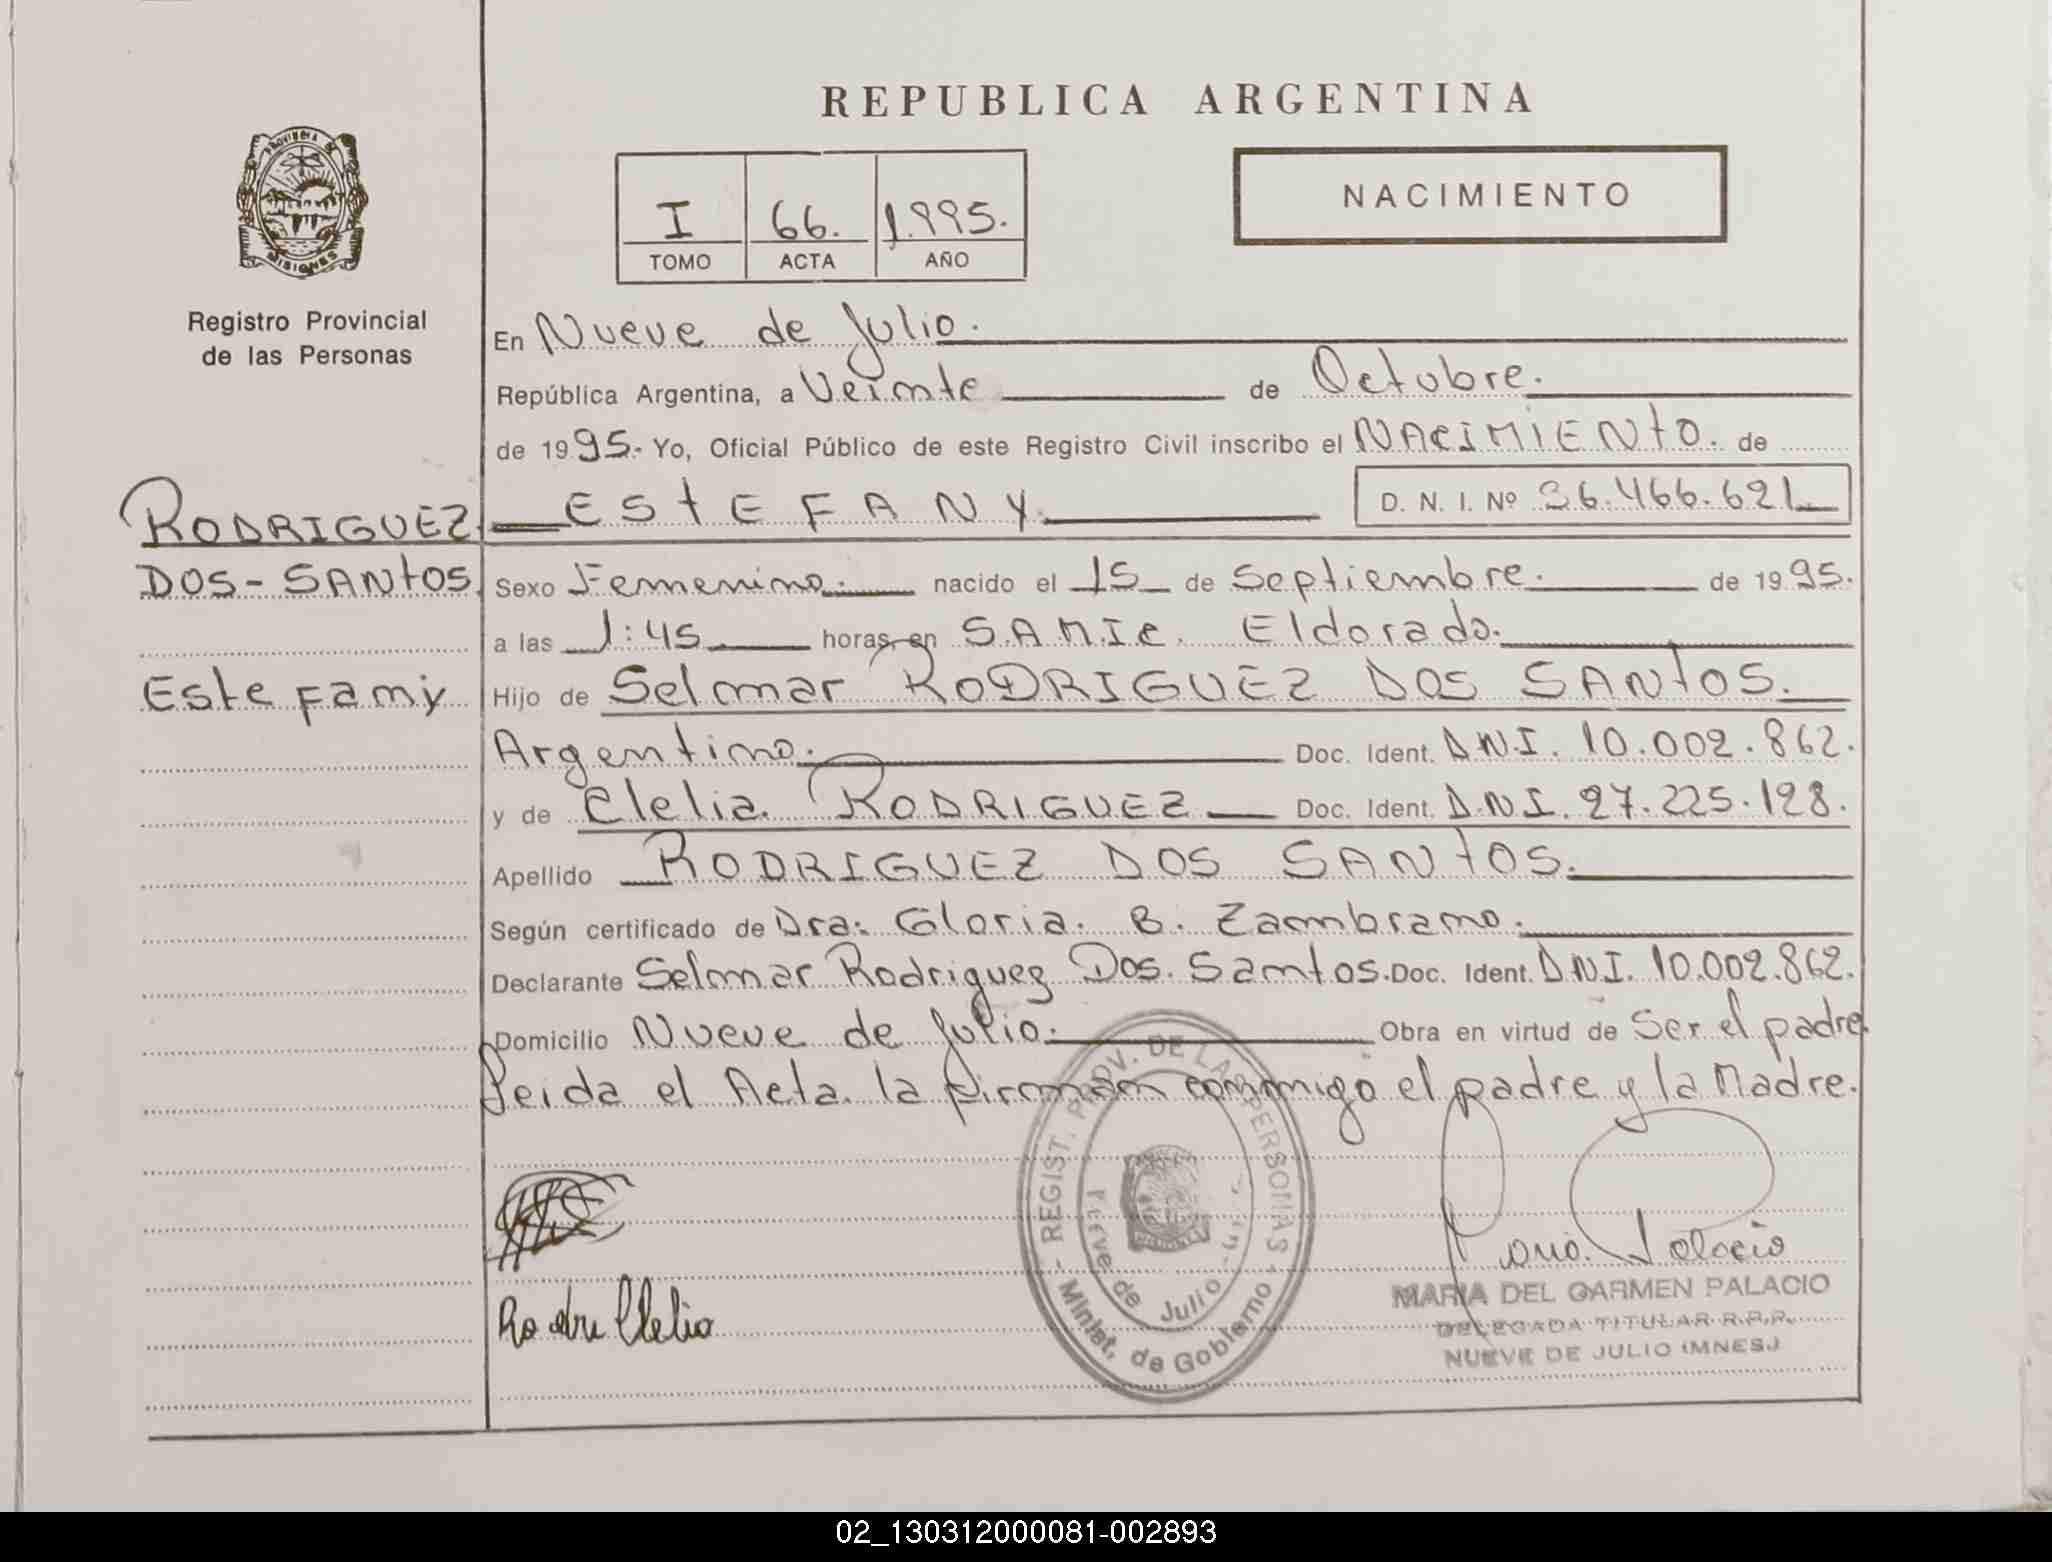 REPUBLICA ARGENTINA
PROVINCIA DE
MISIONES
Registro Provincial
de las Personas
NACIMIENTO
I 66. 1.995.
TOMO ACTA AÑO
En Nueve de Julio.
República Argentina, a Veinte de Octubre.
de 1995. Yo, Oficial Público de este Registro Civil inscribo el NACIMIENTO. de
RODRIGUEZ
DOS-SANTOS
Estefany
ESTEFANY. D. N. I. Nº 36.466.621
Sexo Femenino. nacido el 15 de Septiembre. de 1995.
a las 1:45 horas, en S.A.M.I.C. Eldorado.
Hijo de Selmar RODRIGUEZ DOS SANTOS.
Argentino. Doc. Ident. D.N.I. 10.002.862.
y de Clelia RODRIGUEZ Doc. Ident. D.N.I. 27.225.128.
Apellido RODRIGUEZ DOS SANTOS.
Según certificado de Dra. Gloria. B. Zambrano.
Declarante Selmar Rodriguez Dos. Santos. Doc. Ident. D.N.I. 10.002.862.
Domicilio Nueve de Julio. Obra en virtud de Ser el padre.
Leida el Acta la firman conmigo el padre y la Madre.
- REGIST. PROV. DE LAS PERSONAS -
Minist. de Gobierno
Nueve de Julio
Rodri Clelia
Maria Palacio
MARIA DEL CARMEN PALACIO
DELEGADA TITULAR R.P.P.
NUEVE DE JULIO (MNES.)
02_130312000081-002893